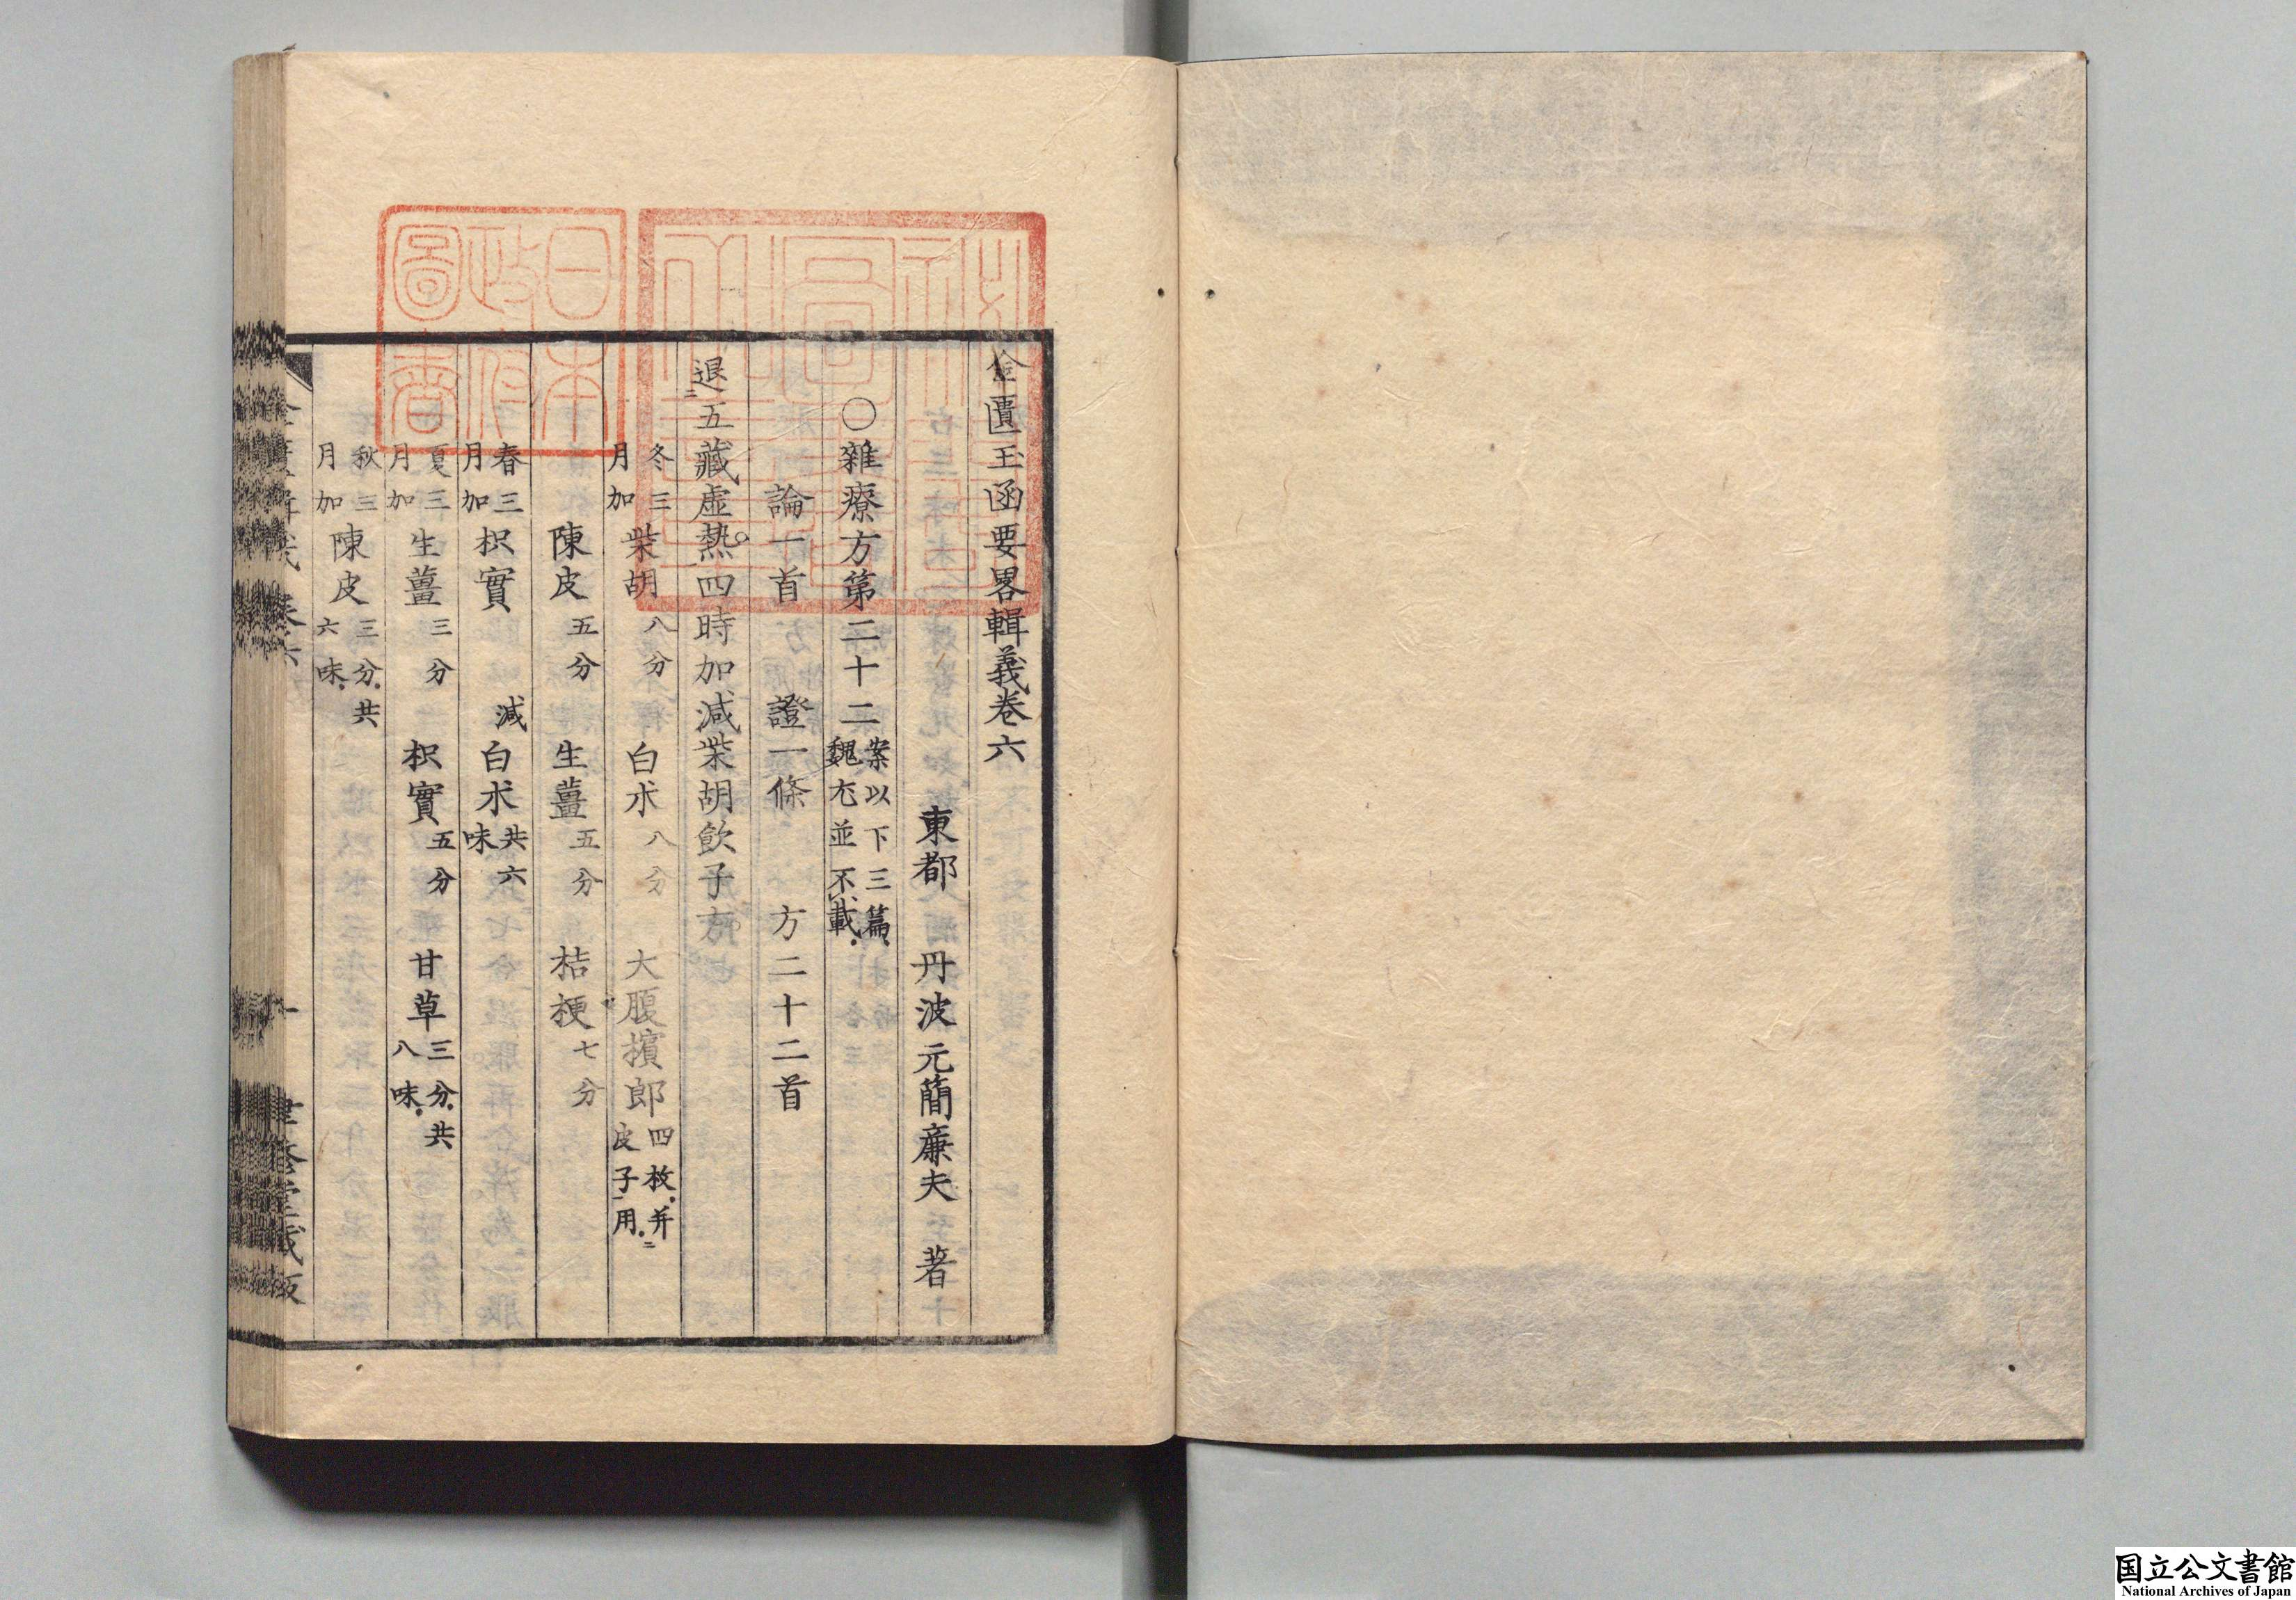 金匱玉函要畧輯義卷六
東都 丹波元簡廉夫 著
○雜療方第二十二 案以下三篇、魏尤並不載、
論一首 證一條 方二十二首
退五藏虛熱四時加減柴胡飲子方
冬三月加 柴胡八分 白朮八分 大腹擯郎四枚、并皮子用、
陳皮五分 生薑五分 桔梗七分
春三月加 枳實 減 白朮共六味
夏三月加 生薑三分 枳實五分 甘草三分、共八味、
秋三月加 陳皮三分、共六味、
日本
政府
圖書
国立公文書館
National Archives of Japan